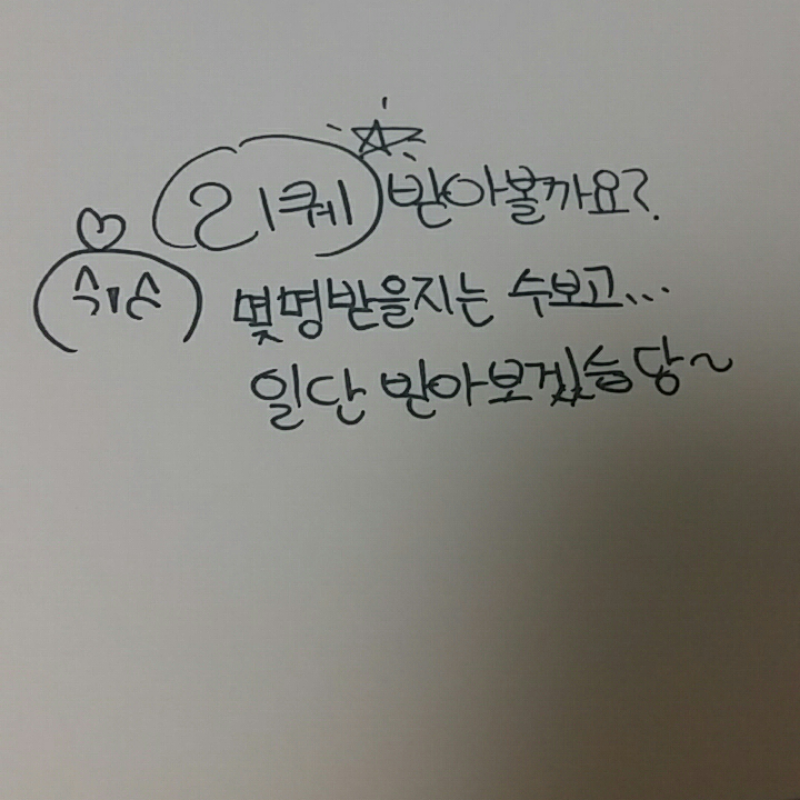 리퀘 받아볼까요?
몇명받을지는 수보고...
일단 받아보겠슴당~